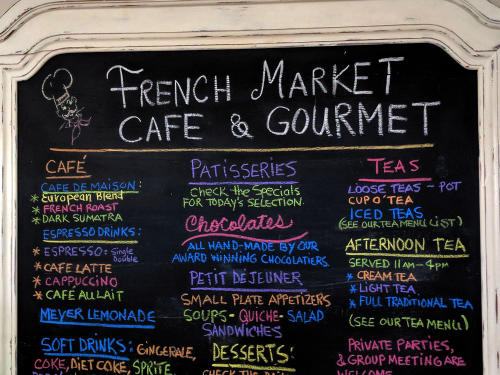 FRENCH MARKET
CAFE & GOURMET
CAFÉ
CAFE DE MAISON:
* European Blend
* FRENCH ROAST
* DARK SUMATRA
ESPRESSO DRINKS:
* ESPRESSO = single
double
* CAFE LATTE
* CAPPUCCINO
* CAFE AU LAIT
MEYER LEMONADE
SOFT DRINKS: GINGERALE,
COKE, DIET COKE, SPRITE
PATISSERIES
Check the Specials
FOR TODAY'S SELECTION.
Chocolates
ALL HAND-MADE BY OUR
AWARD WINNING CHOCOLATIERS
PETIT DEJEUNER
SMALL PLATE APPETIZERS
SOUPS - QUICHE - SALAD
SANDWICHES
DESSERTS:
CHECK THE
TEAS
LOOSE TEAS - POT
CUP O' TEA
ICED TEAS
(SEE OUR TEA MENU LIST)
AFTERNOON TEA
SERVED 11AM - 4PM
* CREAM TEA
* LIGHT TEA
* FULL TRADITIONAL TEA
(SEE OUR TEA MENU)
PRIVATE PARTIES,
& GROUP MEETING ARE
WELCOME